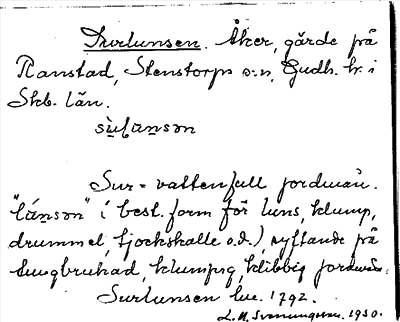 Surlunsen. Åker, gärde på
Ranstad, Stenstorps s:n, Gudh. hr. i
Skb. län.
sùlunsən
Sur = vattenfull jordmån.
"lunsən" i best. form för luns, klump,
drummel, tjockskalle o.d.), syftande på
tungbrukad, klumpig, klibbig jordmån.
Surlunsen lur. 1792.
L. M. Svenungsson. 1930.